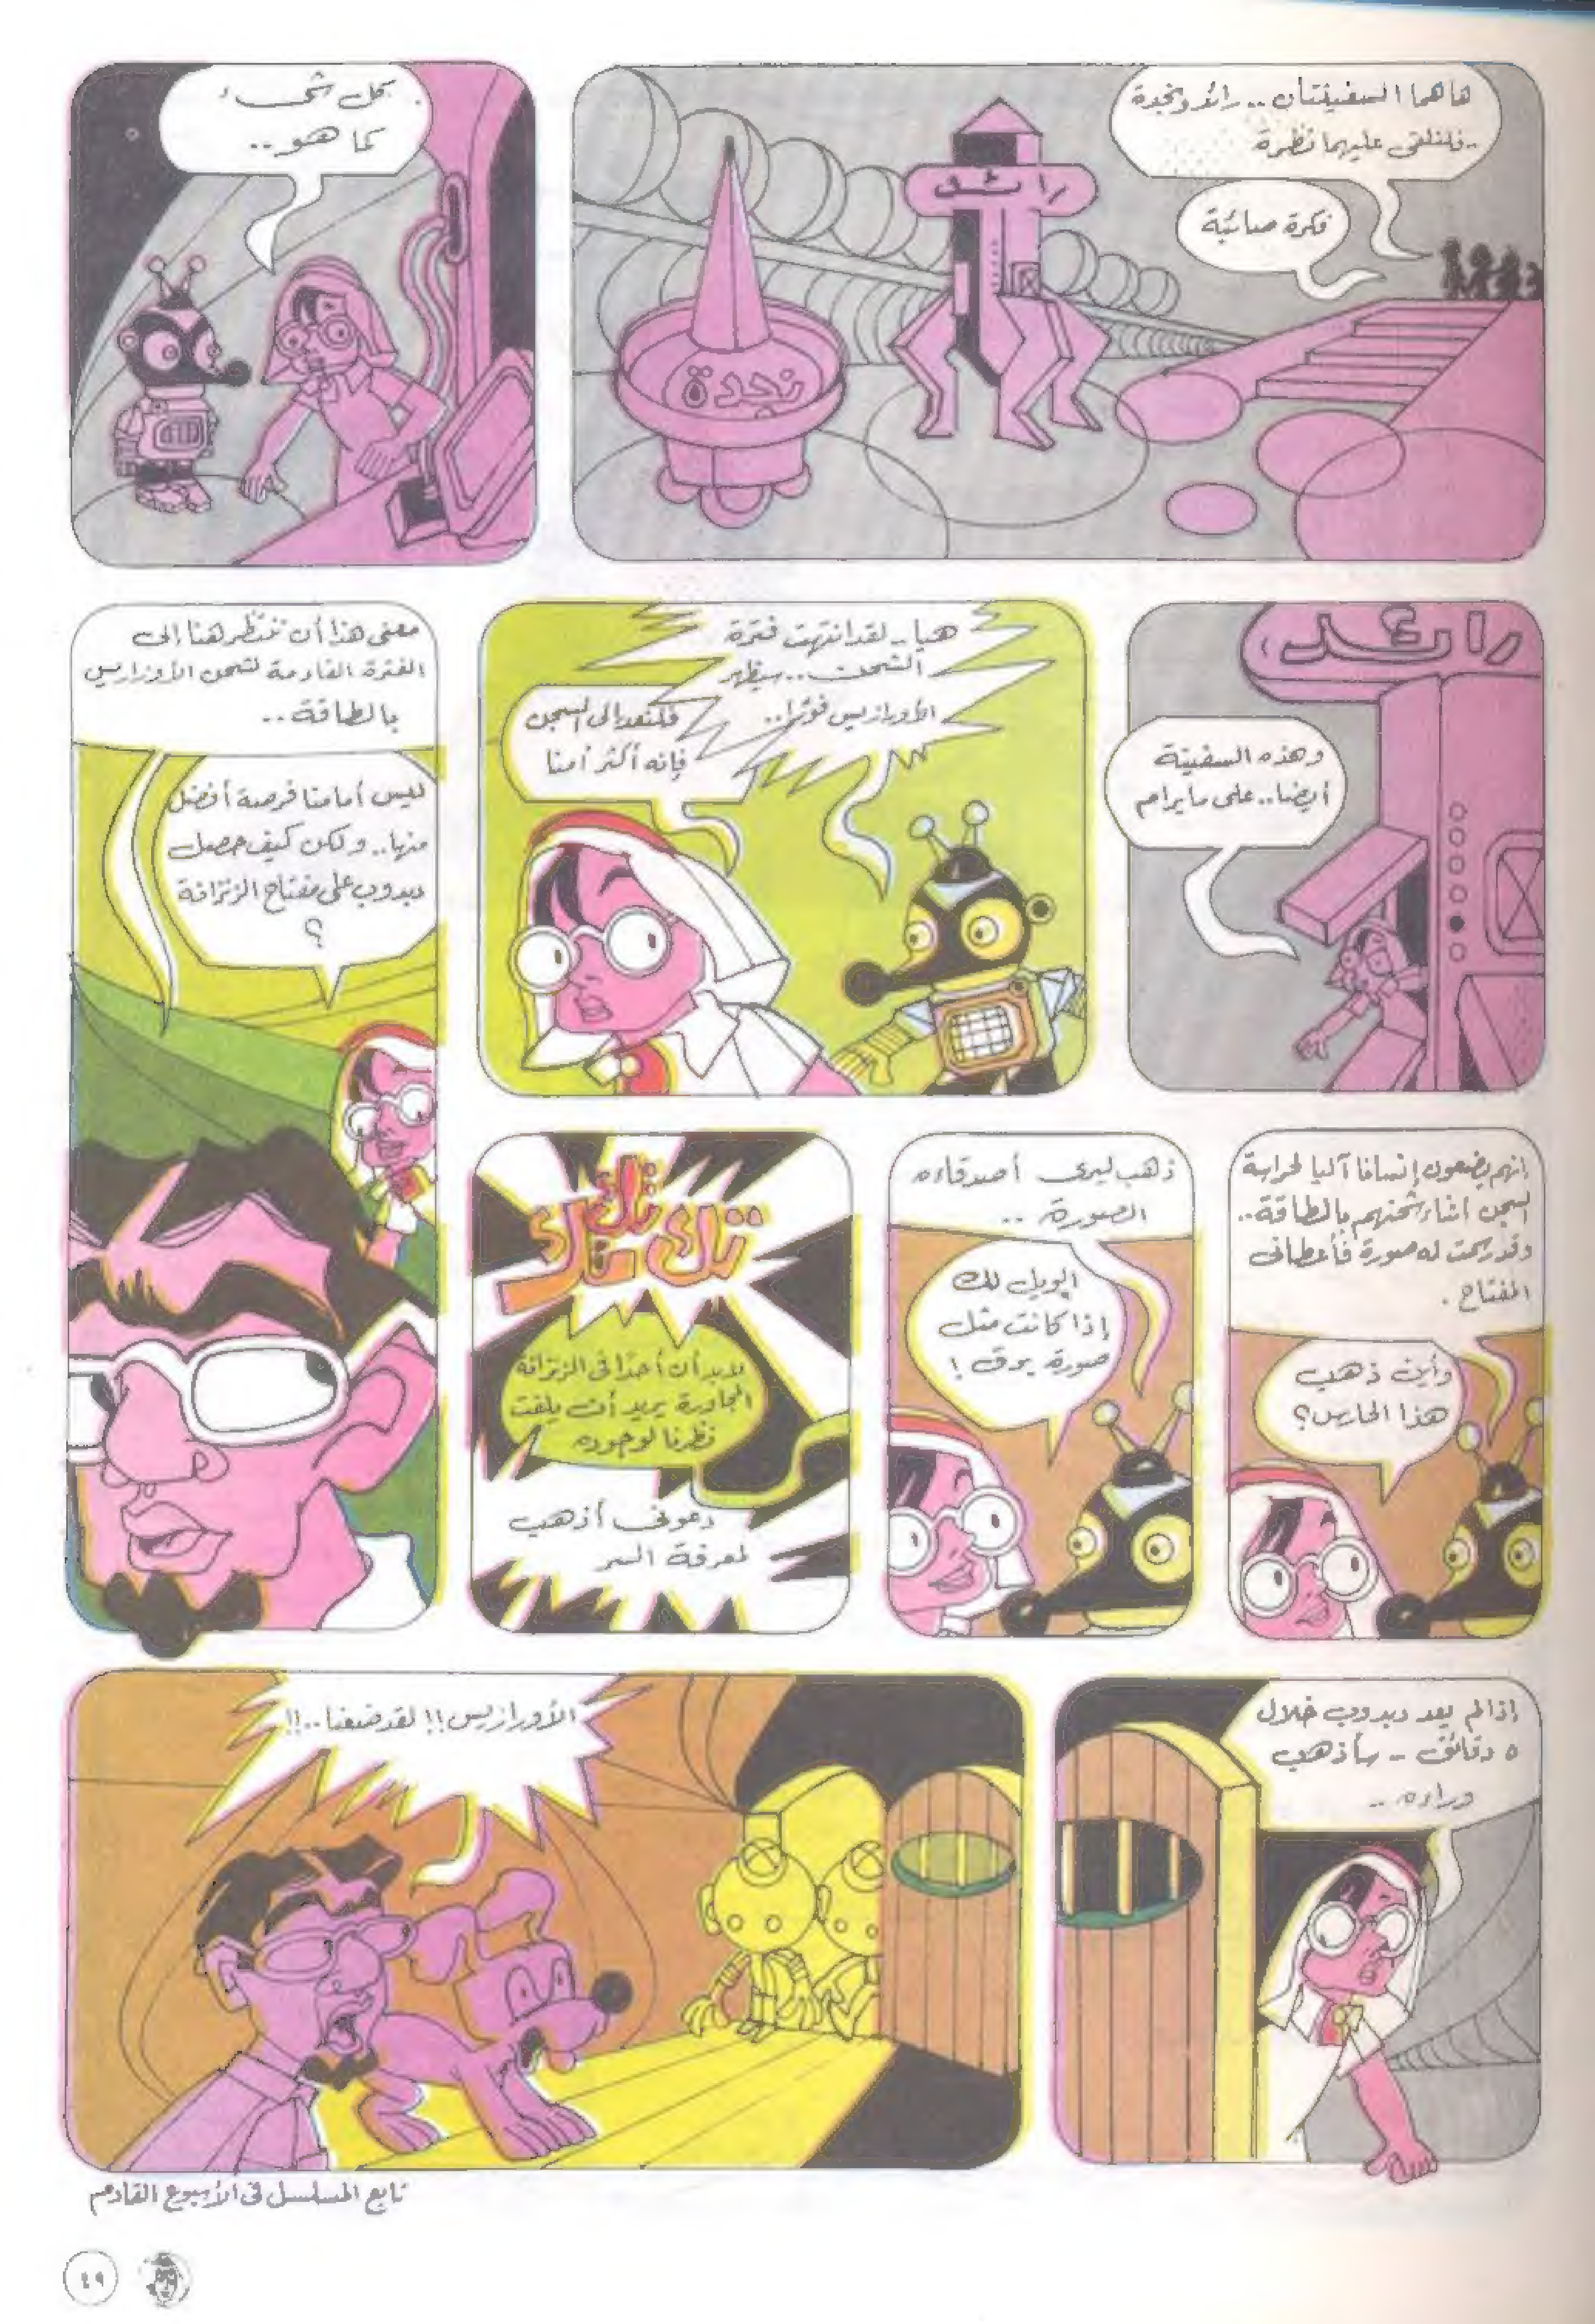 هاهما السفينتان .. رائد ونجدة
.. فلنلقي عليهما نظرة
فكرة صائبة
رائد
نجدة
كل شيء
كما هو ..
رائد
وهذه السفينة
أيضا .. على مايرام
هيا .. لقد انتهت فترة
الشحن .. سيظهر
الأورازيس فورًا ..
فلنعد إلى السجن
فإنه أكثر أمنا
معنى هذا أن ننتظر هنا إلى
الفترة القادمة لشحن الأورازيس
بالطاقة ..
ليس أمامنا فرصة أفضل
منها .. ولكن كيف حصل
دبدوب على مفتاح الزنزانة
؟
إنهم يضعون إنسانا آليا لحراسة
السجن أثناء شحنهم بالطاقة ..
وقد رسمت له صورة فأعطاني
المفتاح .
وأين ذهب
هذا الحارس؟
ذهب ليرى أصدقاءه
الصورة ..
الويل لك
إذا كانت مثل
صورة برق !
تك تك تك
لابد أن أحدًا في الزنزانة
المجاورة يريد أن يلفت
نظرنا لوجوده
دعوني أذهب
لمعرفة السر
إذا لم يعد دبدوب خلال
٥ دقائق - سأذهب
وراءه ..
الأورازيس !! لقد ضعنا .. !!
تابع المسلسل في الأسبوع القادم
٤٩